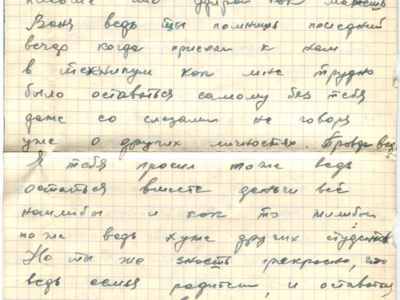 что удирай как можешь
Ваня ведь ты помнишь последний
вечер когда приехал к нам
в техникум как мне трудно
было оставаться самому без тебя
даже со слезами не говоря
уже о других личностях. Правда ведь
Я тебя просил тоже ведь
остаться вместе деньги всё
нашлибы и как то жилибы
тоже ведь хуже других студентов
Но ты же знаешь прекрасно, что
ведь семья родители и оставаться